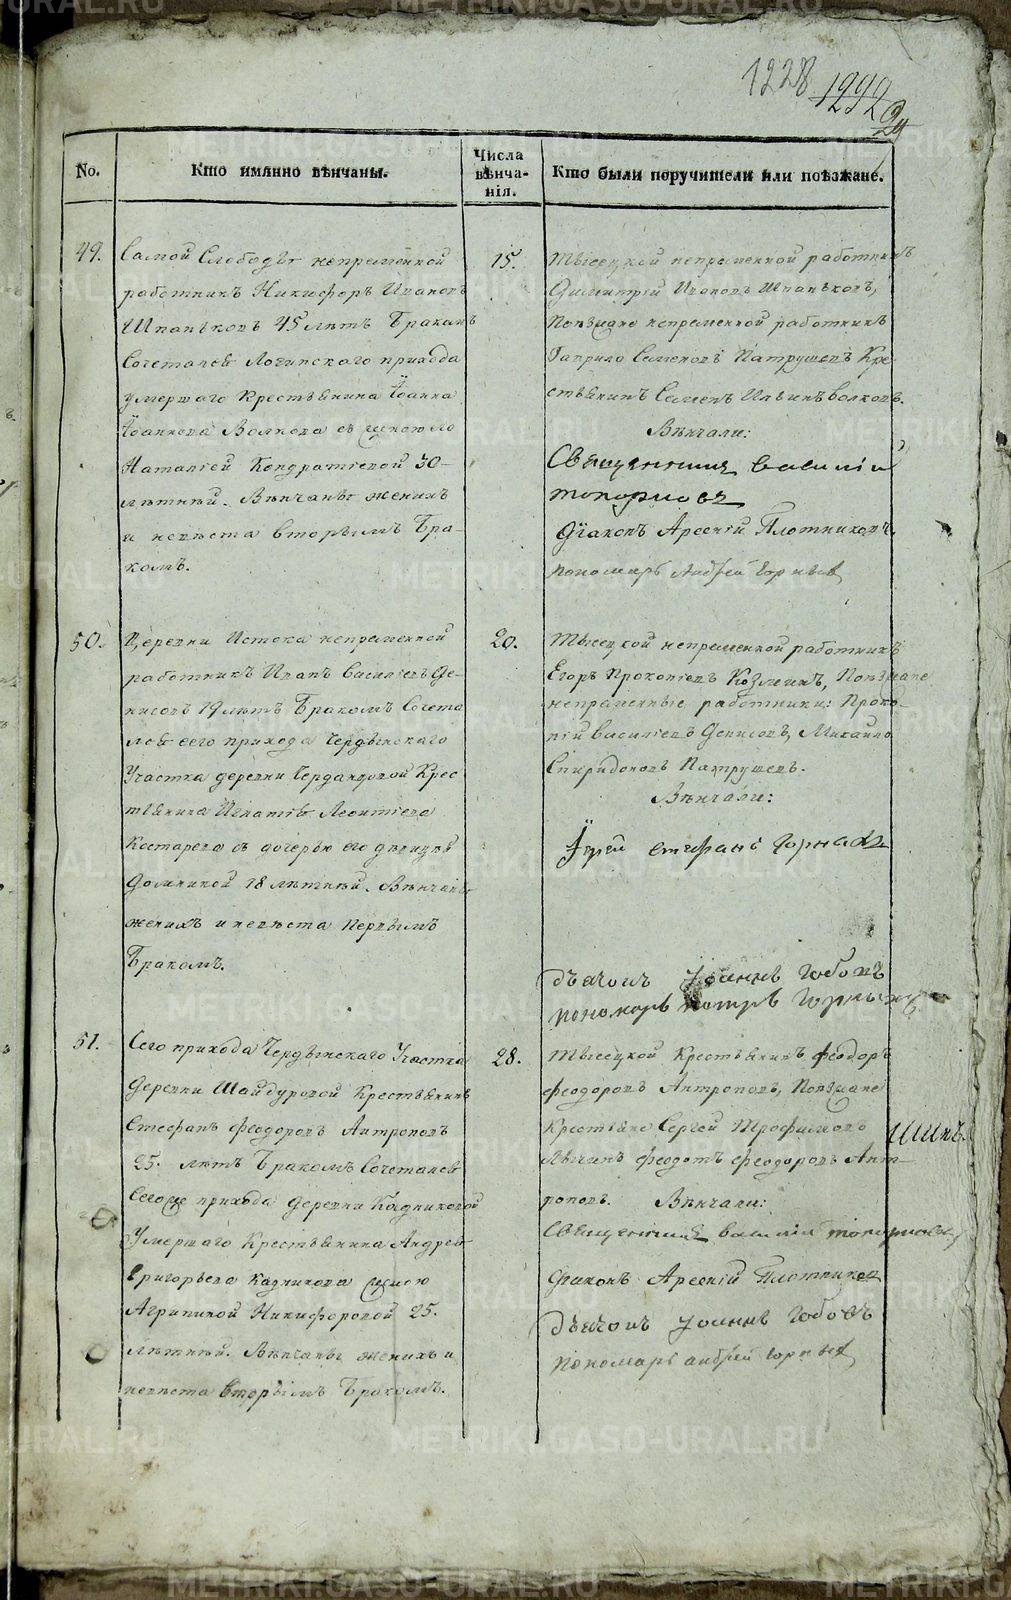 1228 1292
No.
Кто имянно вѣнчаны.
Числа
вѣнча-
нія.
Кто были поручители или поѣзжане.
49.
Самой Слободы непременной
работникъ Никифоръ Ивановъ
Шпаньковъ 45 лѣтъ Бракомъ
Сочетался Логинского прихода
умершаго Крестьянина Іоанна
Іоаннова Волкова съ женою
Наталіей Кондратіевой 30-
лѣтней. Вѣнчаны женихъ
и невѣста вторымъ Бра-
комъ.
15.
Тысецкой непременной работникъ
Димитрей Ивановъ Шпаньковъ,
Поѣзжане непременной работникъ
Гаврило Семеновъ Патрушевъ Кре-
стьянинъ Семенъ Ильинъ Волковъ.
Вѣнчали:
Священникъ Василій
Топорковъ
Діаконъ Арсеній Плотниковъ.
пономарь Андрей Горныхъ
50.
Деревни Истока непременной
работникъ Иванъ Василіевъ Де-
нисовъ 19 лѣтъ Бракомъ Сочета
лся сего прихода Чердынского
Участка деревни Черданцовой Крес
тьянина Игнатія Леонтіева
Костарева съ дочерью его дѣвицей
Домникой 18 лѣтней. Вѣнчаны
женихъ и невѣста Первымъ
Бракомъ.
20.
Тысецкой непременной работникъ
Егоръ Прокопіевъ Козминъ, Поѣзжане
непременные работники: Проко-
пій Василіевъ Денисовъ, Михайло
Спиридоновъ Патрушевъ.
Вѣнчали:
Іерей Стефанъ Горныхъ
Дьячокъ Іоаннъ Чобовъ
пономарь Петръ Горныхъ
51.
Сего прихода Чердынского Участка
Деревни Шайдуровой Крестьянинъ
Стефанъ Феодоровъ Антроповъ
25. лѣтъ Бракомъ Сочетался
Сегожъ прихода деревни Кадниковой
Умершаго Крестьянина Андрея
Григорьева Кадникова женою
Агрипиной Никифоровой 25.
лѣтней. Вѣнчаны женихъ и
невѣста вторымъ Бракомъ.
28.
Тысецкой Крестьянинъ Феодоръ
Феодоровъ Антроповъ, Поѣзжане
Крестьяне Сергей Трофимовъ
Феодотъ Феодоровъ Ант-
роповъ. Вѣнчали:
Священникъ Василій Топорковъ
Діаконъ Арсеній Плотниковъ
Дьячокъ Іоаннъ Чобовъ
пономарь Андрей Горныхъ
METRIKI.GASO-URAL.RU